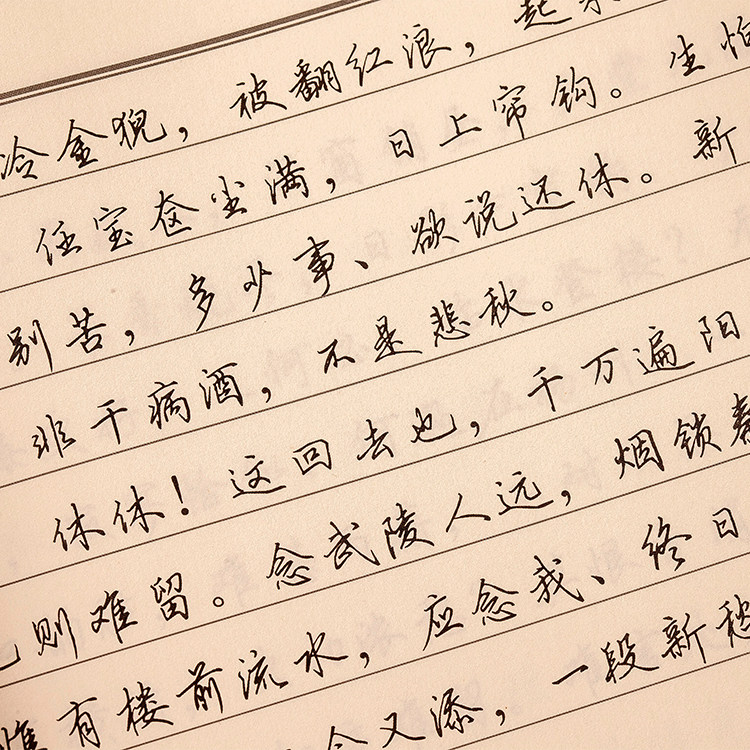 冷金猊，被翻红浪，起来
任宝奁尘满，日上帘钩。生怕
别苦，多少事、欲说还休。新
非干病酒，不是悲秋。
休休！这回去也，千万遍阳
则难留。念武陵人远，烟锁秦
惟有楼前流水，应念我、终日
又添，一段新愁